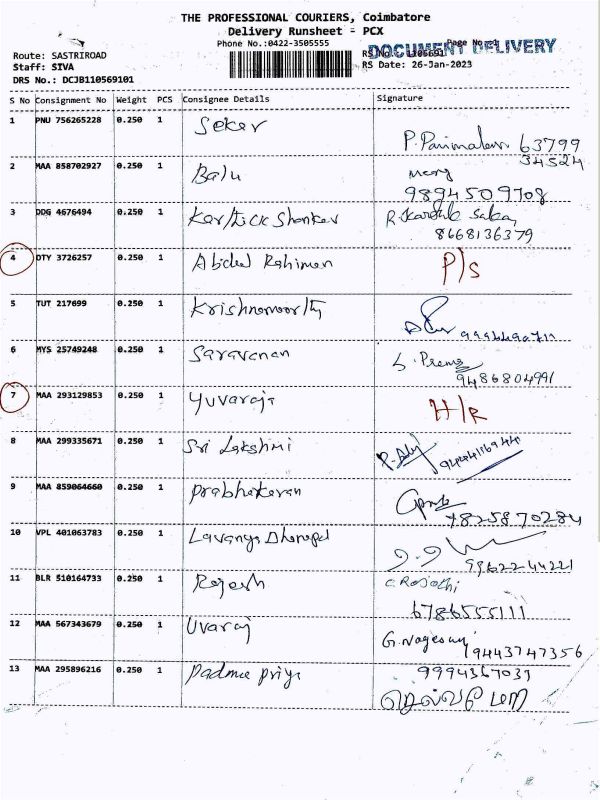 THE PROFESSIONAL COURIERS, Coimbatore
Delivery Runsheet - PCX
Phone No.:0422-3505555
Page No. 1
DOCUMENT DELIVERY
Route: SASTRIROAD
RS No.: 1105691
Staff: SIVA
RS Date: 26-Jan-2023
DRS No.: DCJB110569101
S No Consignment No Weight PCS Consignee Details Signature
1 PNU 756265228 0.250 1 Seker
P. Parimalam 63799
34524
2 MAA 858702927 0.250 1 Balu
9894509708
3 DDG 4676494 0.250 1 Karthick Shanker
8668136379
4 DTY 3726257 0.250 1 Abidul Rahiman P/S
5 TUT 217699 0.250 1 Krishnamoorthy
6 MYS 25749248 0.250 1 Saravanan S. Prema
9486804991
7 MAA 293129853 0.250 1 Yuvaraja H/R
8 MAA 299335671 0.250 1 Sri Lakshmi
9 MAA 859064660 0.250 1 Prabhakaran
7825870284
10 VPL 401063783 0.250 1 Lavanya Dhanapal
9962244221
11 BLR 510164733 0.250 1 Rajesh
6786555111
12 MAA 567343679 0.250 1 Uvaraj
9443747356
13 MAA 295896216 0.250 1 Padma priya 9994367033